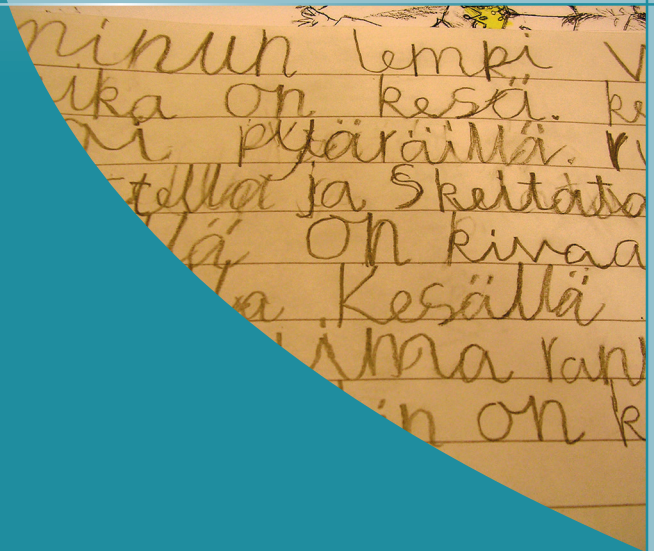 minun lempi v
ika on kesä. ke
oi pyöräillä. ru
tella ja Skeitata
llä on kivaa
la. Kesällä
ilma ran
in on k